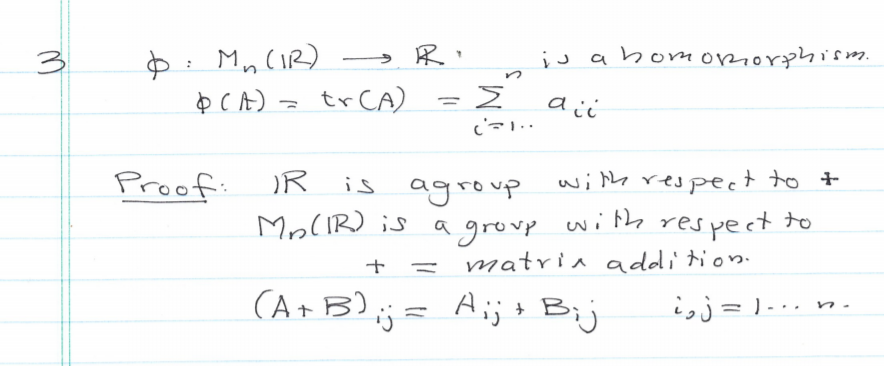 3 φ : Mₙ(ℝ) ⟶ ℝ. is a homomorphism.
φ(A) = tr(A) = ∑ⁿᵢ₌₁.. aᵢᵢ
Proof: ℝ is a group with respect to +
Mₙ(ℝ) is a group with respect to
+ = matrix addition.
(A+B)ᵢⱼ = Aᵢⱼ + Bᵢⱼ i,j = 1... n.